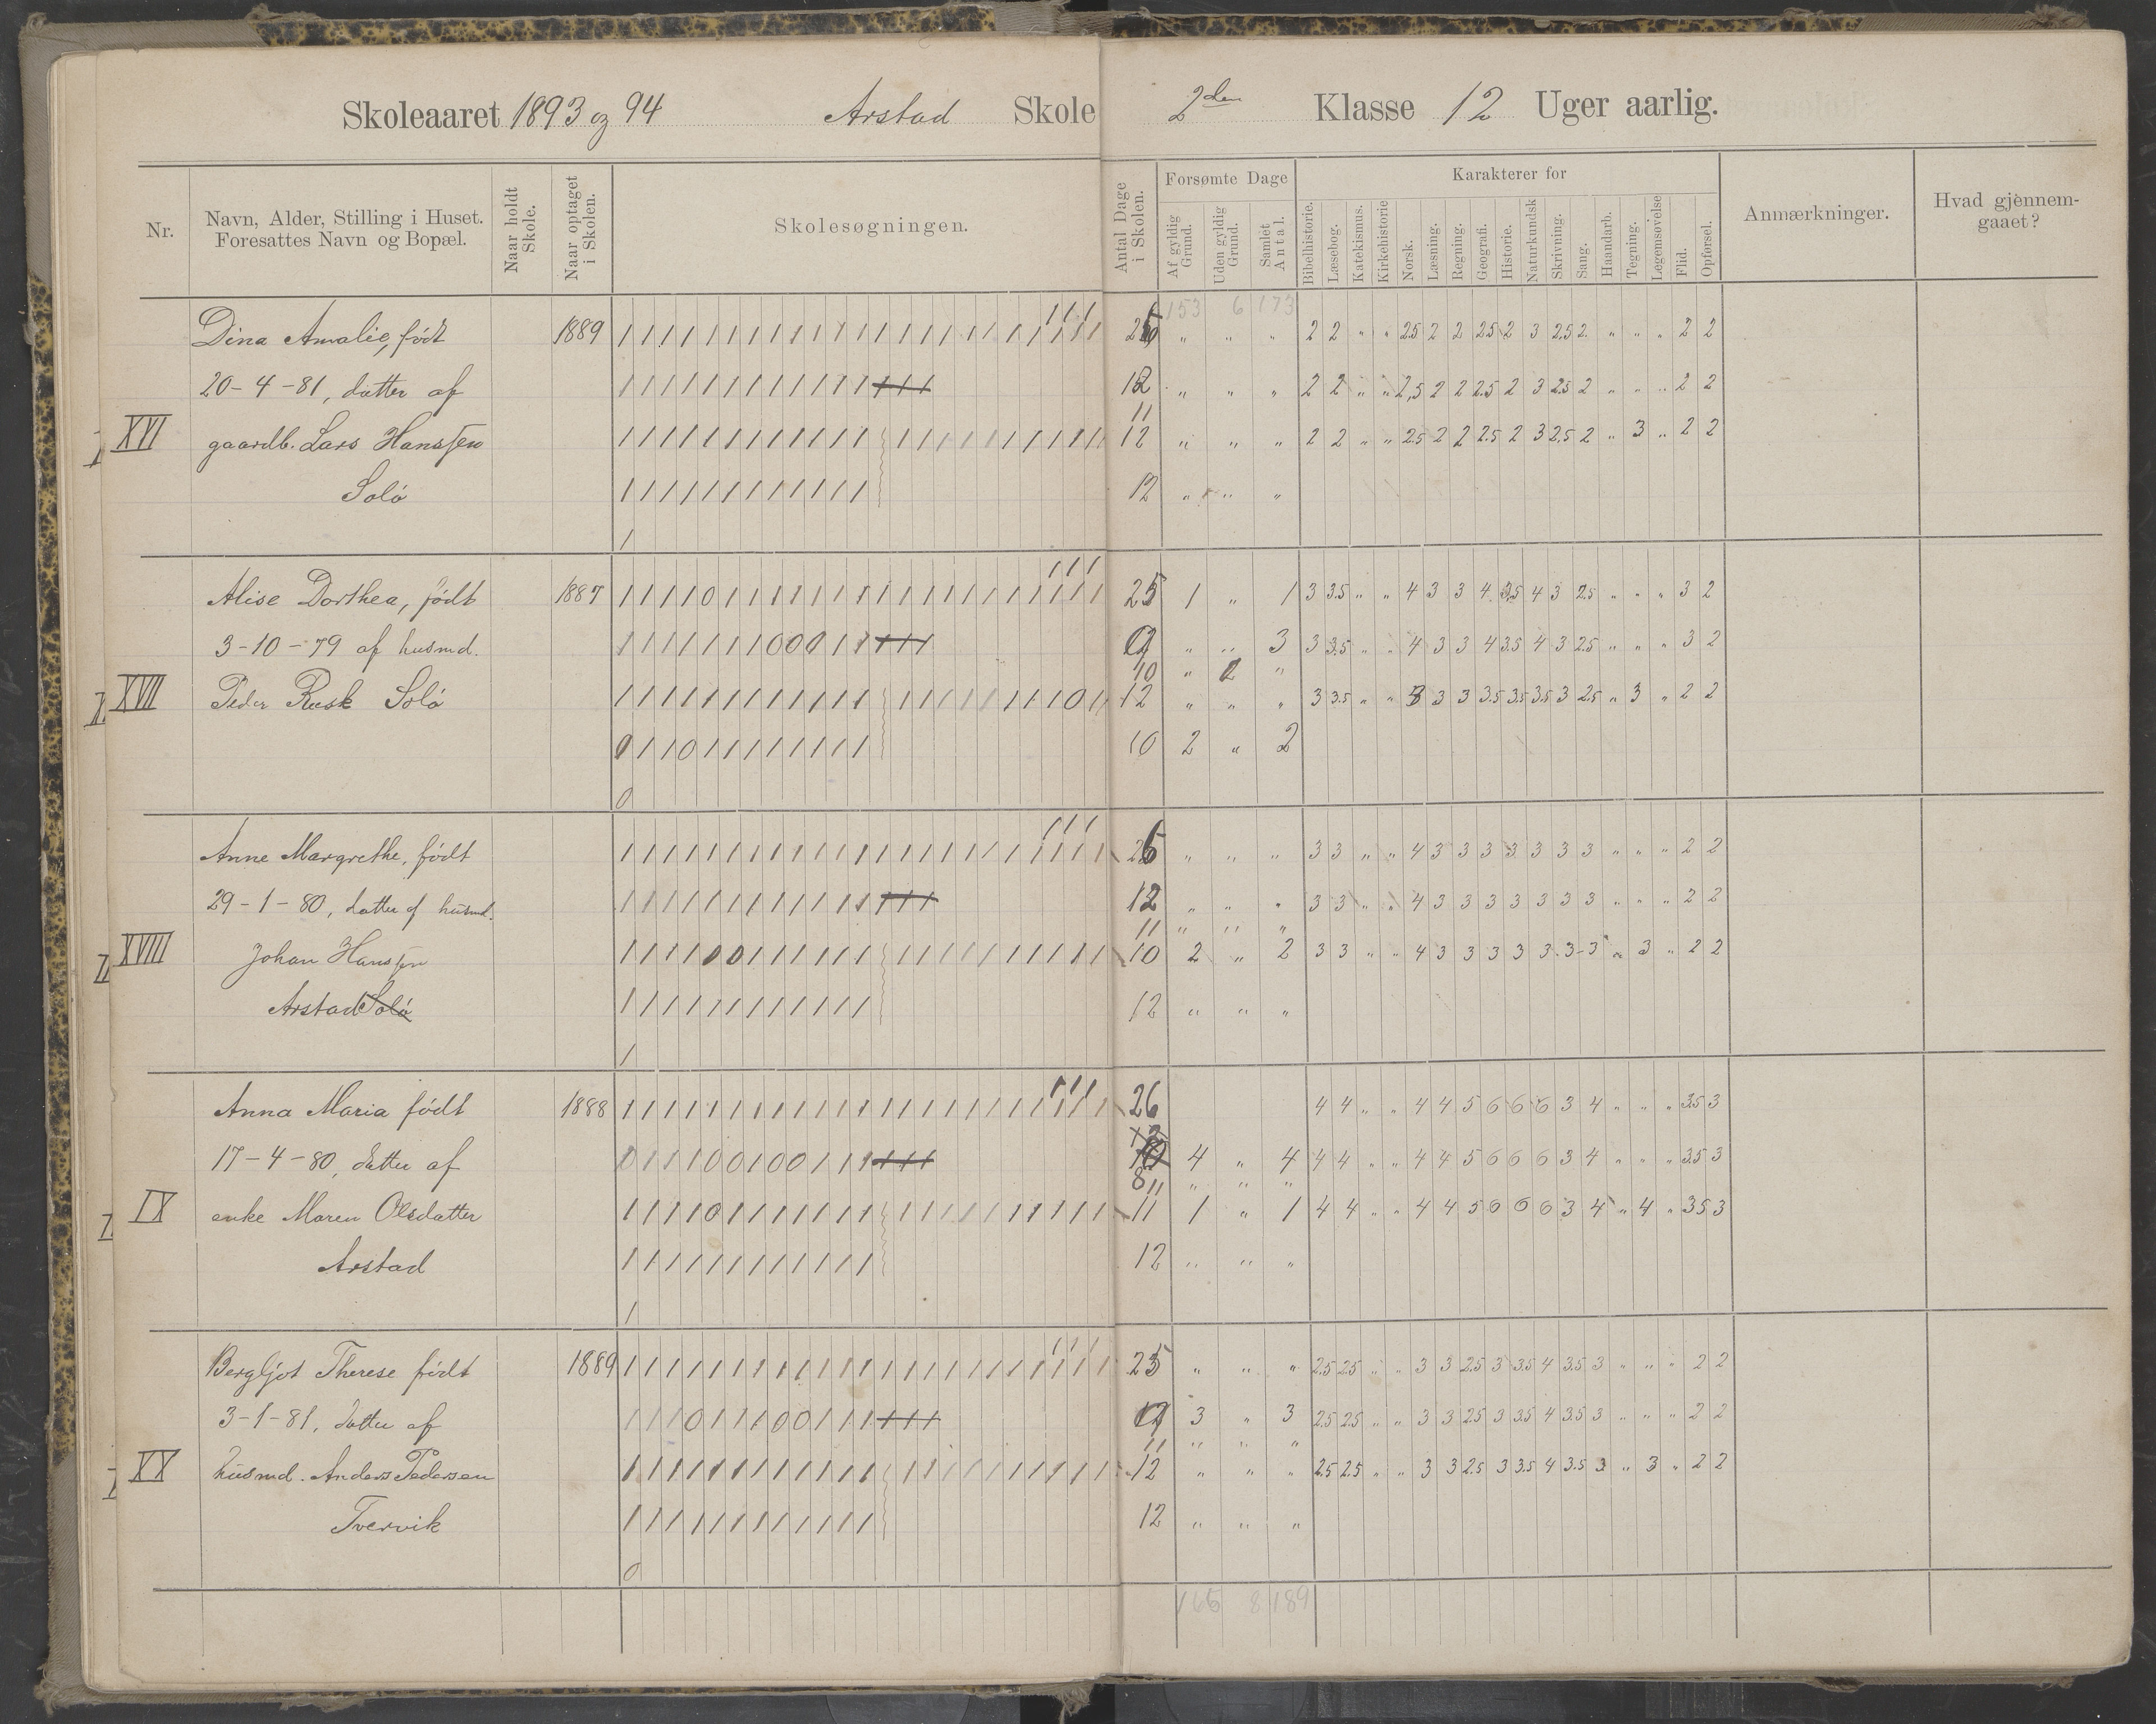 Skoleaaret 1893 og 94 Arstad Skole 2den Klasse 12 Uger aarlig.
Nr.
Navn, Alder, Stilling i Huset.
Foresattes Navn og Bopæl.
Naar holdt
Skole.
Naar optaget
i Skolen.
Skolesøgningen.
Antal Dage
i Skolen.
Forsømte Dage
Af gyldig
Grund.
Uden gyldig
Grund.
Samlet
Antal.
Karakterer for
Bibelhistorie.
Læsebog.
Katekismus.
Kirkehistorie
Norsk.
Læsning.
Regning.
Geografi.
Historie.
Naturkundsk
Skrivning.
Sang.
Haandarb.
Tegning.
Legemsøvelse
Flid.
Opførsel.
Anmærkninger.
Hvad gjennem-
gaaet?
153 6 173
Dina Amalie, født 1889 1 1 1 1 1 1 1 1 1 1 1 1 1 1 1 1 1 1 1 1 1 1 1 1 " " " 2 2 " " 2.5 2 2 2.5 2 3 2.5 2 " " " 2 2
20-4-81, datter af 12 " " " 2 2 " " 2,5 2 2 2.5 2 3 2.5 2 " " " 2 2
11
XVI gaardb. Lars Hanssen 12 " " " 2 2 " " 2.5 2 2 2.5 2 3 2.5 2 " 3 " 2 2
Solø 12 " " "
Alise Dorthea, født 1887 25 1 " 1 3 3.5 " " 4 3 3 4 3.5 4 3 2.5 " " " 3 2
3-10-79 af husmd. 9 " " 3 3 3.5 " " 4 3 3 4 3.5 4 3 2.5 " " " 3 2
10 " 2 "
XVII Peder Rusk Solø 12 " " " 3 3.5 " " 3 3 3 3.5 3.5 3.5 3 2.5 " 3 " 2 2
0 1 1 0 1 1 1 1 1 1 1 1 10 2 " 2
0
Anne Margrethe, født 26 " " " 3 3 " " 4 3 3 3 3 3 3 3 " " " 2 2
29-1-80, datter af husmd. 12 " " " 3 3 " " 4 3 3 3 3 3 3 3 " " " 2 2
11 " " "
XVIII Johan Hanssen 10 2 " 2 3 3 " " 4 3 3 3 3 3 3 3 " 3 " 2 2
Arstad Solø 12 " " "
Anna Maria født 1888 26 4 4 " " 4 4 5 6 6 6 3 4 " " " 3.5 3
17-4-80, datter af 4 " 4 4 4 " " 4 4 5 6 6 6 3 4 " " " 3.5 3
8 11 " " "
IX enke Maren Olsdatter 11 1 " 1 4 4 " " 4 4 5 6 6 6 3 4 " 4 " 3.5 3
Arstad 12 " " "
Bergljot Therese født 1889 25 " " " 2.5 2.5 " " 3 3 2.5 3 3.5 4 3.5 3 " " " 2 2
3-1-81, datter af 9 3 " 3 2.5 2.5 " " 3 3 2.5 3 3.5 4 3.5 3 " " " 2 2
11 " " "
XX husmd. Anders Pedersen 12 " " " 2.5 2.5 " " 3 3 2.5 3 3.5 4 3.5 3 " 3 " 2 2
Tvervik 12 " " "
0
165 8 189